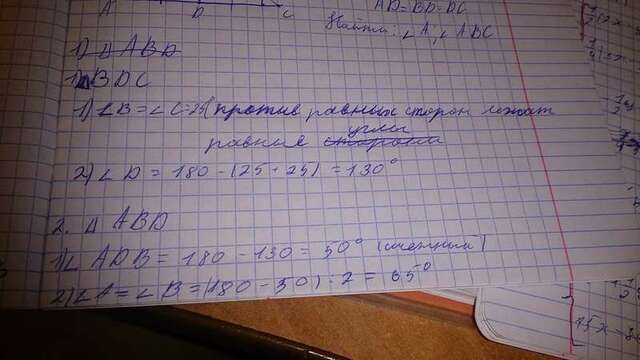 A D C
AD=BD=DC
Найти: ∠A, ∠ABC
1) △ABD
1. △BDC
1) ∠B=∠C=25 (против равных сторон лежат
углы
равные стороны
2) ∠D = 180 - (25 + 25) = 130°
2. △ABD
1) ∠ADB = 180 - 130 = 50° (смежный)
2) ∠A = ∠B = (180 - 50) : 2 = 65°